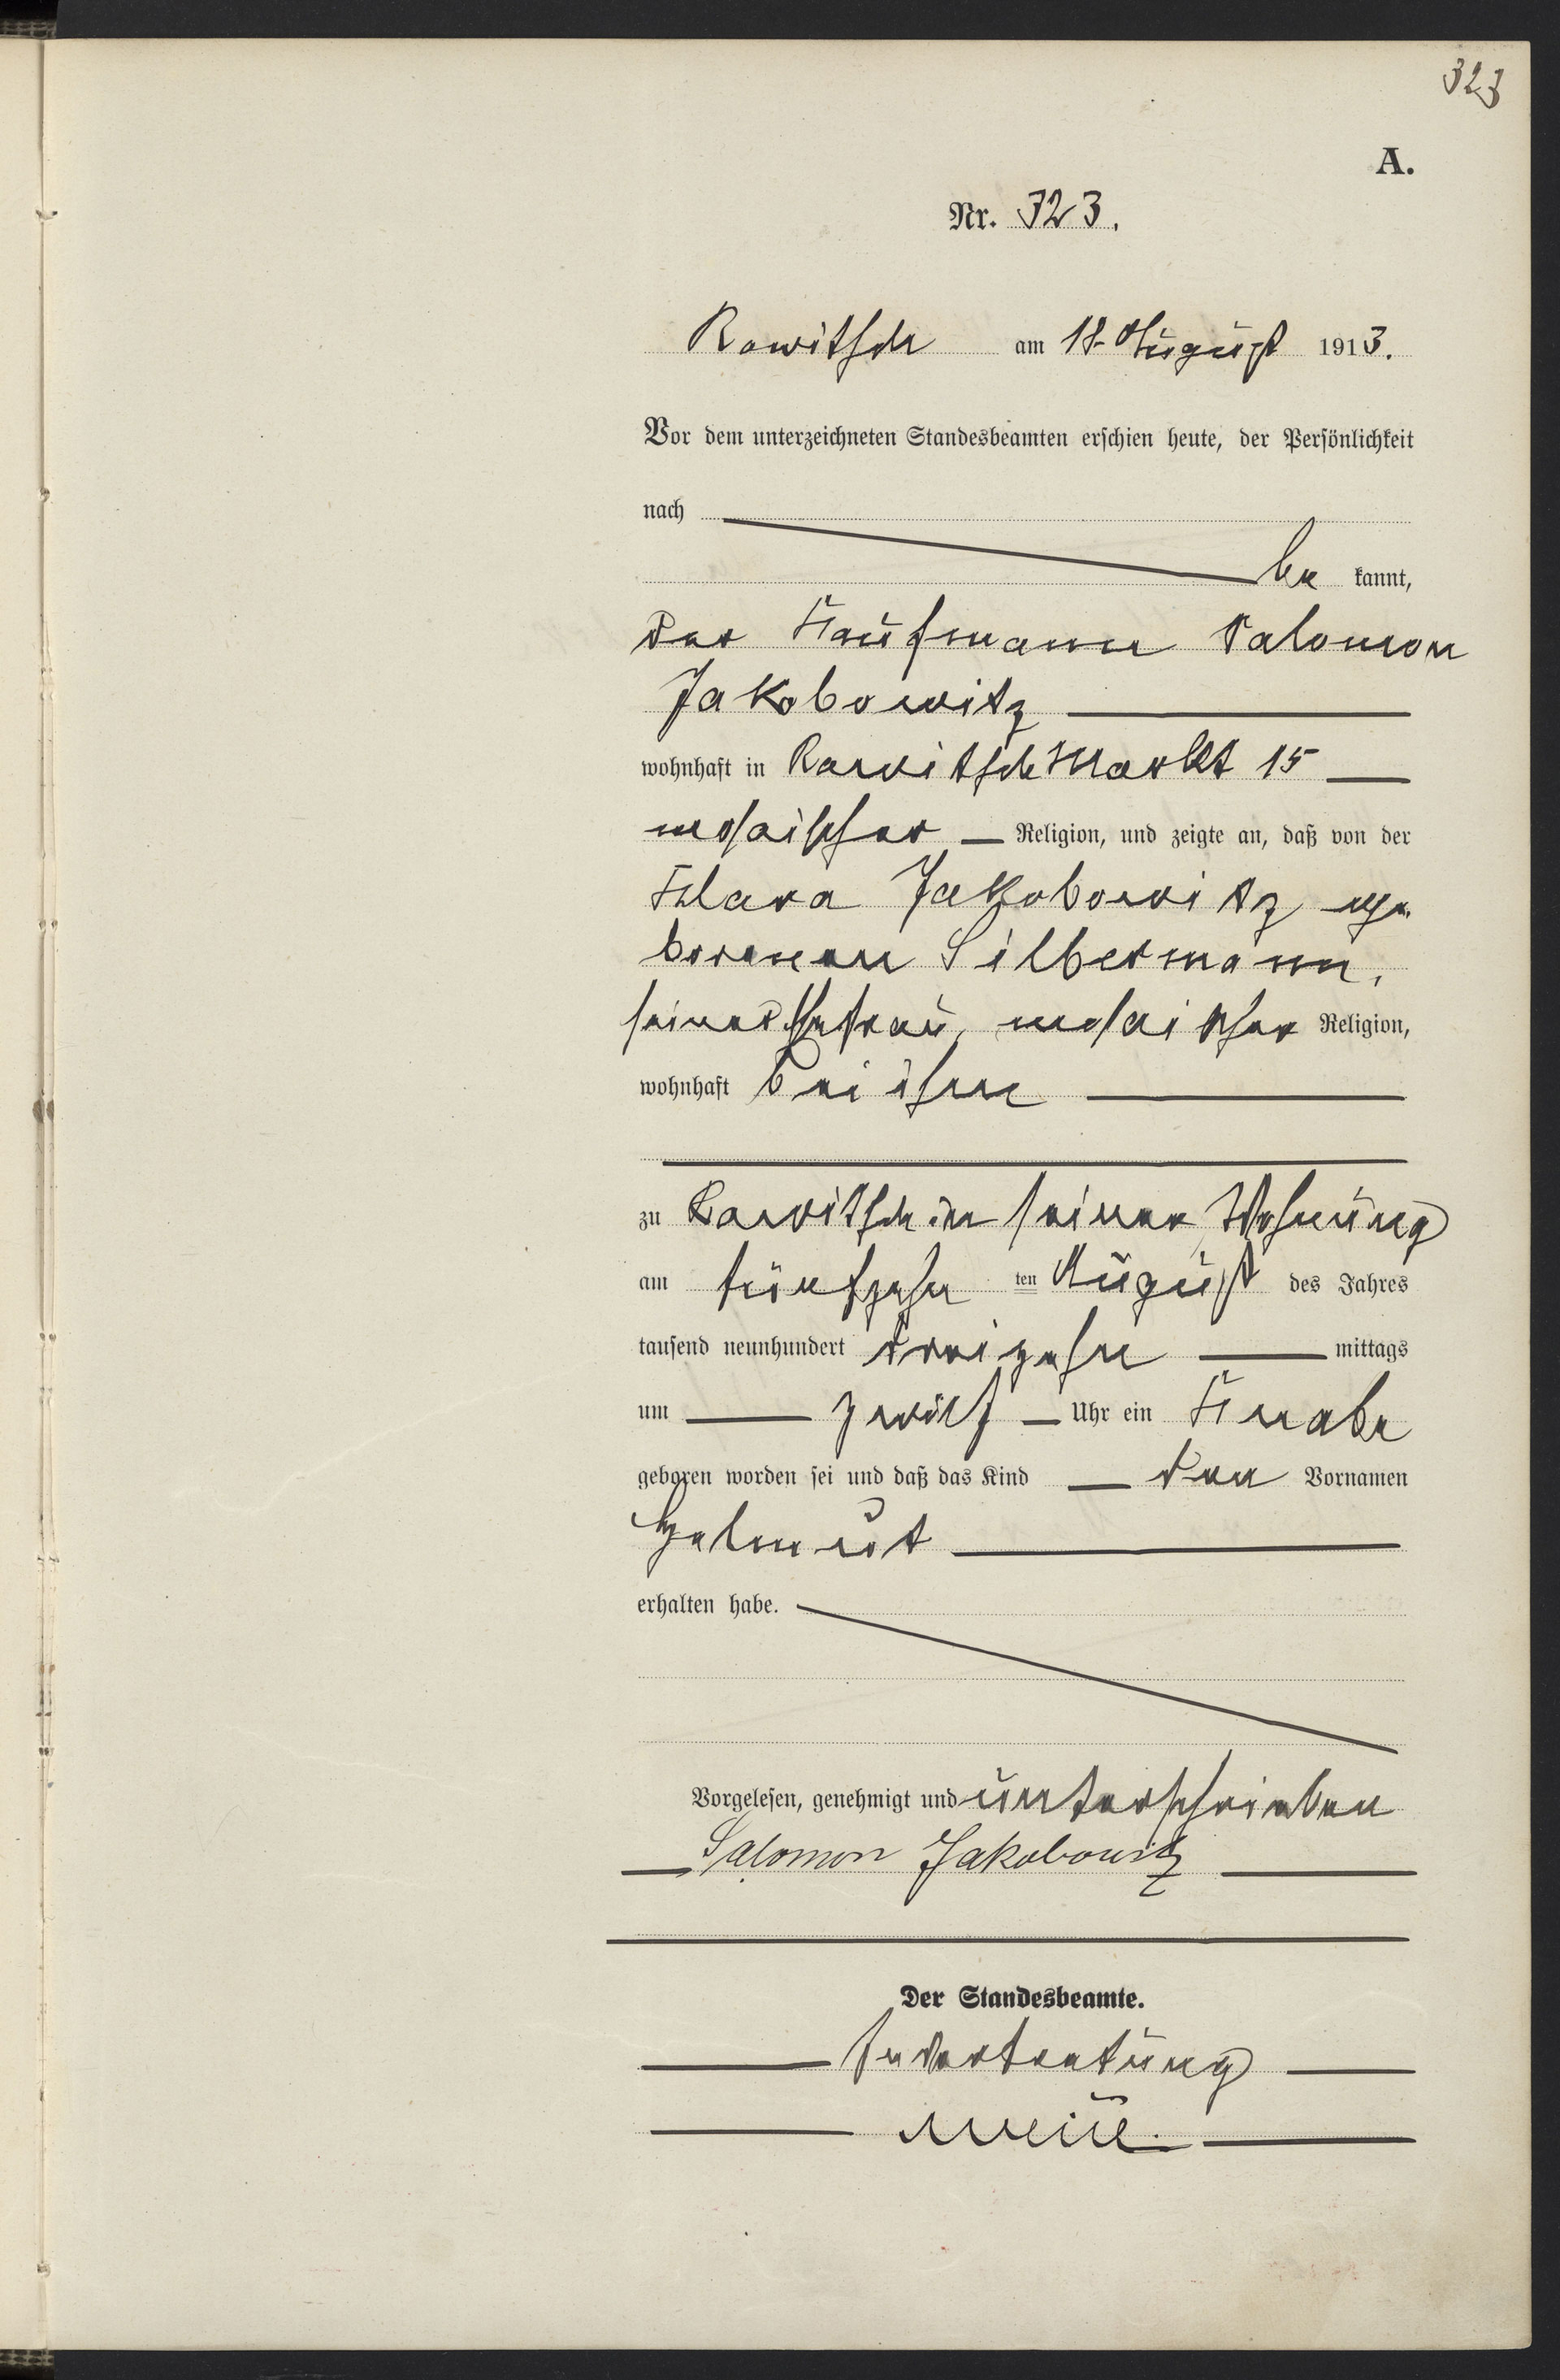 323
A.
Nr. 323.
Rawitsch am 18. August 1913.
Vor dem unterzeichneten Standesbeamten erschien heute, der Persönlichkeit
nach
be kannt,
der Kaufmann Salomon
Jakobowitz
wohnhaft in Rawitsch Markt 15
mosaischer Religion, und zeigte an, daß von der
Klara Jakobowitz ge-
borenen Silbermann,
seiner Ehefrau, mosaischer Religion,
wohnhaft bei ihm
zu Rawitsch in seiner Wohnung
am fünfzehn ten August des Jahres
tausend neunhundert dreizehn mittags
um zwölf Uhr ein Knabe
geboren worden sei und daß das Kind den Vornamen
Helmut
erhalten habe.
Vorgelesen, genehmigt und unterschrieben
Salomon Jakobowitz
Der Standesbeamte.
In Vertretung